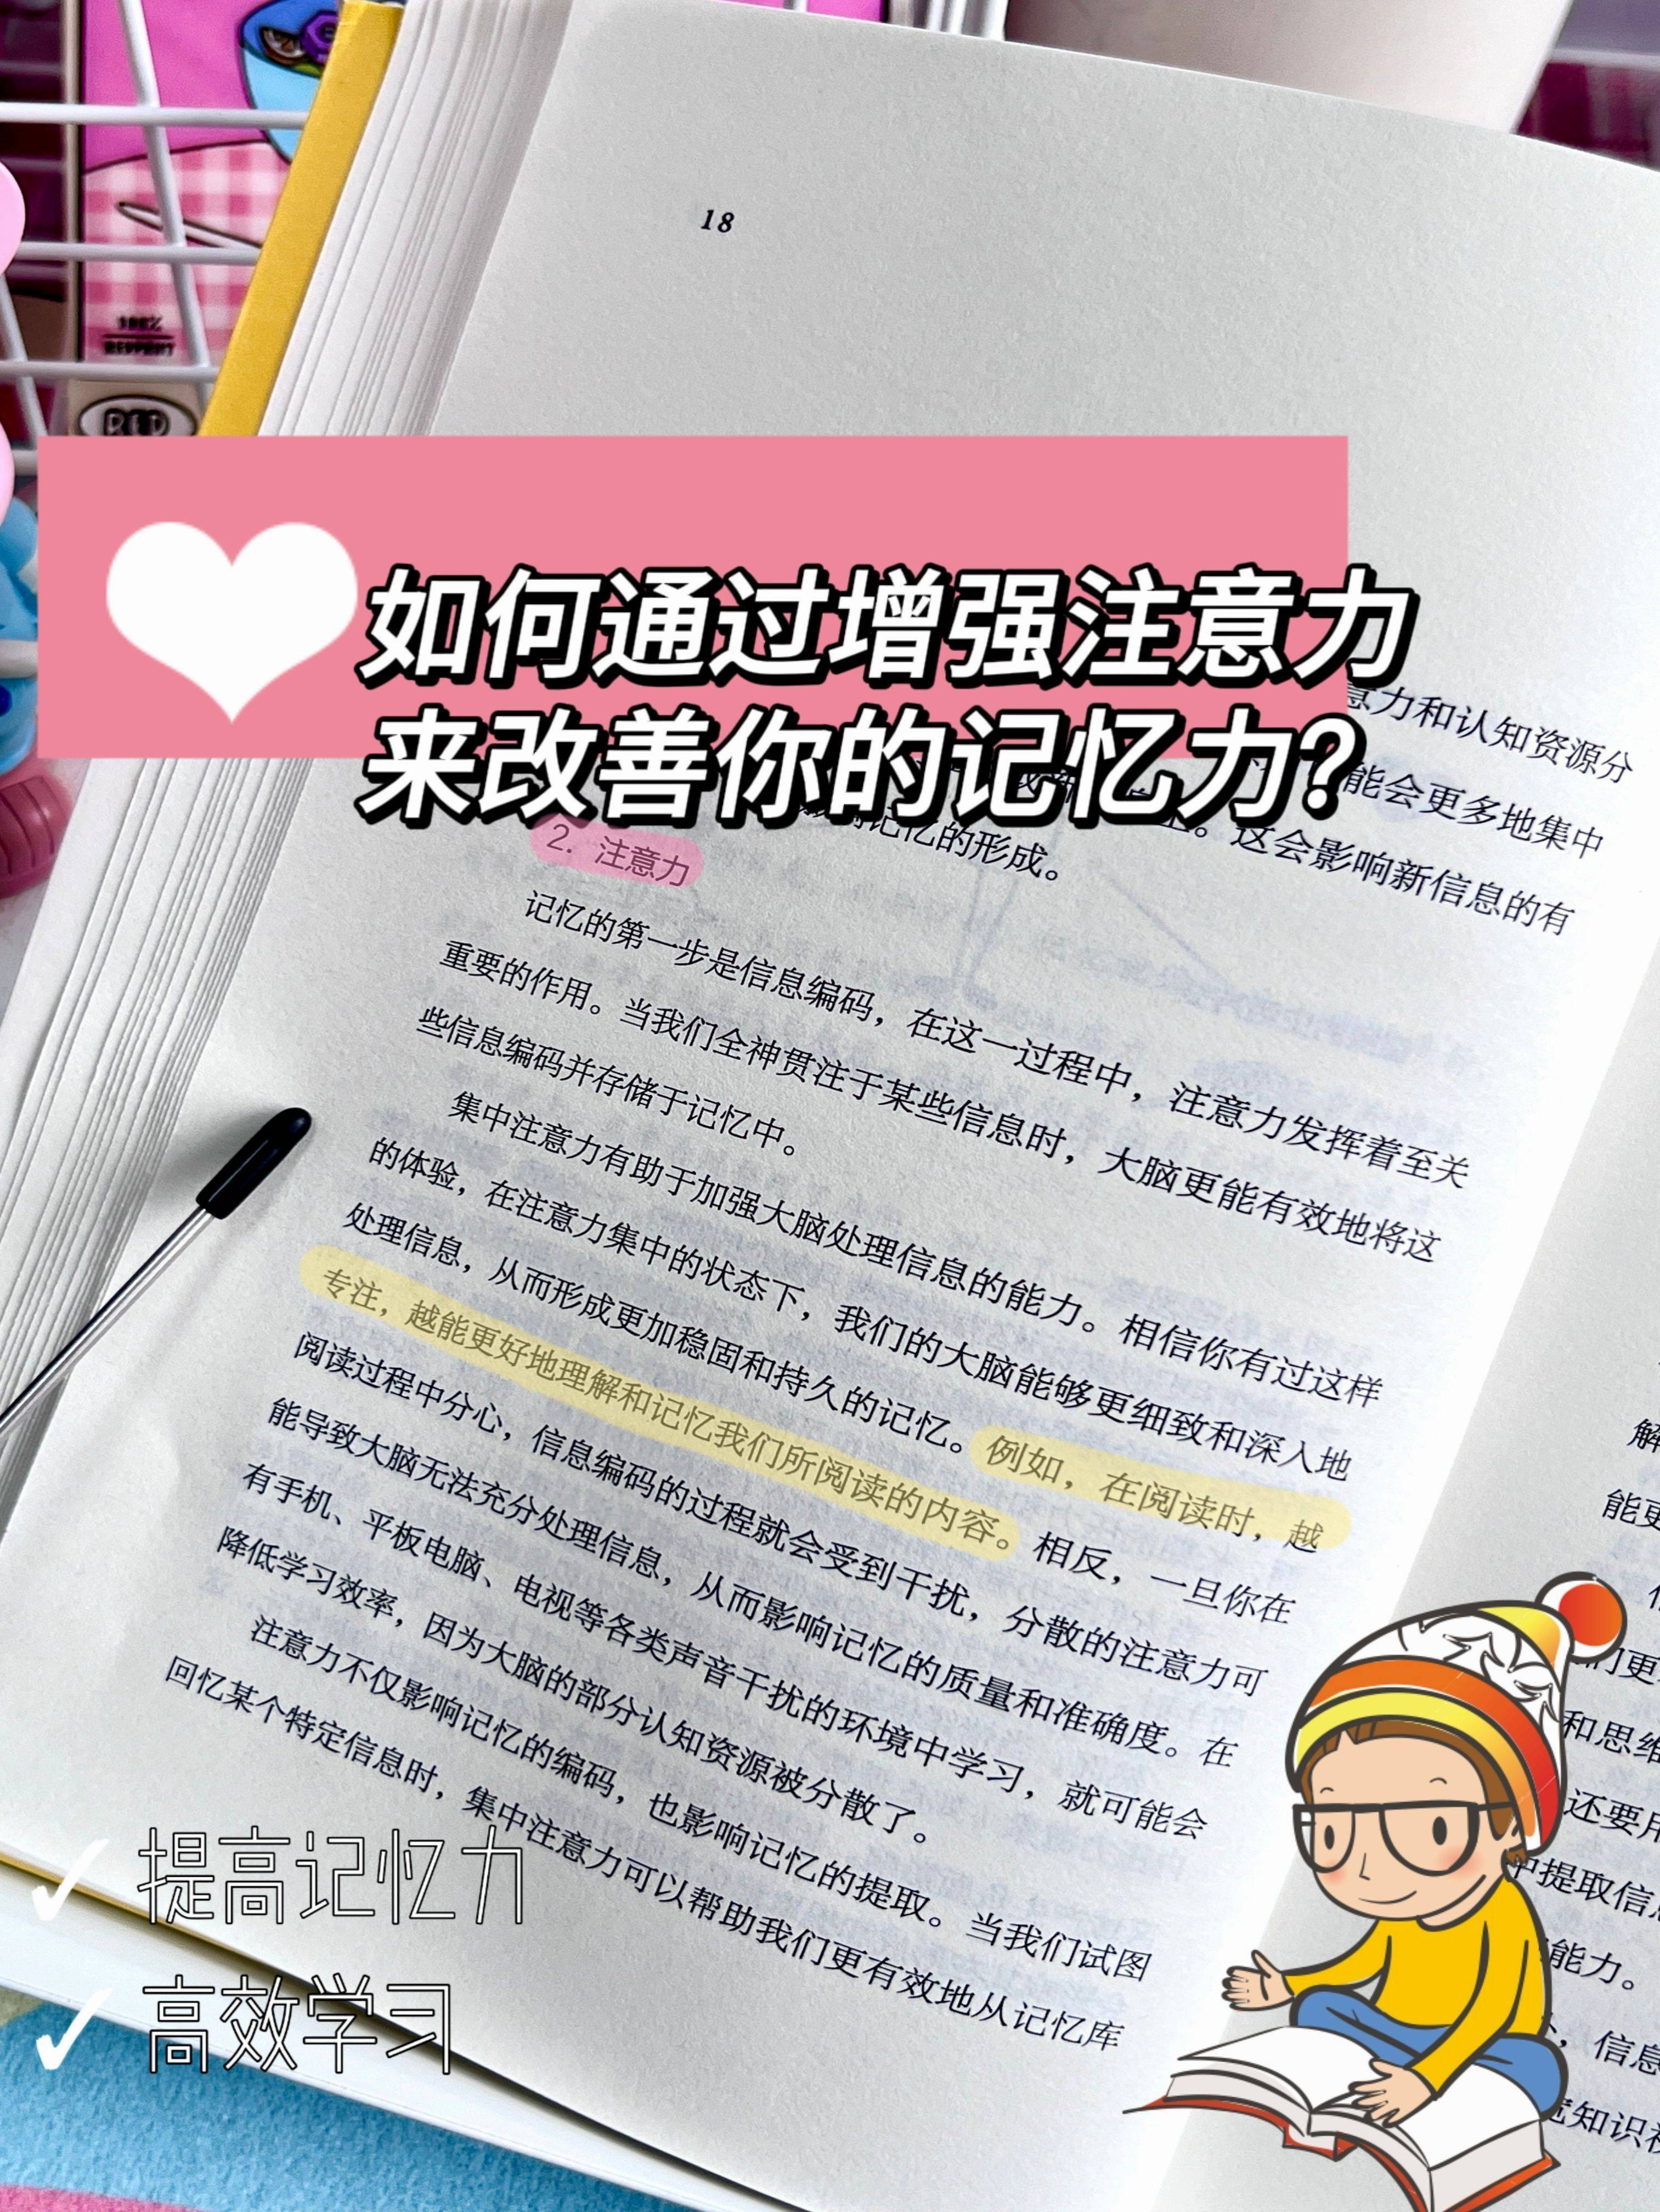 18
如何通过增强注意力
来改善你的记忆力?
意力和认知资源分
能会更多地集中
。这会影响新信息的有
记忆的形成。
2. 注意力
记忆的第一步是信息编码，在这一过程中，注意力发挥着至关
重要的作用。当我们全神贯注于某些信息时，大脑更能有效地将这
些信息编码并存储于记忆中。
集中注意力有助于加强大脑处理信息的能力。相信你有过这样
的体验，在注意力集中的状态下，我们的大脑能够更细致和深入地
处理信息，从而形成更加稳固和持久的记忆。例如，在阅读时，越
专注，越能更好地理解和记忆我们所阅读的内容。相反，一旦你在
阅读过程中分心，信息编码的过程就会受到干扰，分散的注意力可
能导致大脑无法充分处理信息，从而影响记忆的质量和准确度。在
有手机、平板电脑、电视等各类声音干扰的环境中学习，就可能会
降低学习效率，因为大脑的部分认知资源被分散了。
注意力不仅影响记忆的编码，也影响记忆的提取。当我们试图
回忆某个特定信息时，集中注意力可以帮助我们更有效地从记忆库
提高记忆力
高效学习
解
能更
们更
和思维
还要用
中提取信息
能力。
，信息
知识
100%
RED